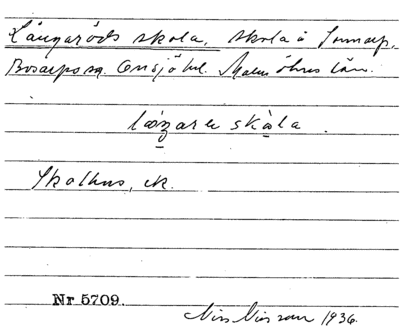 Långaröds skola, skola i Sunnarp,
Bosarps sn. Onsjö hd. Malmöhus län.
skåla.
Skolhus, ek.
Nr 5709.
Nils Nilsson 1936.